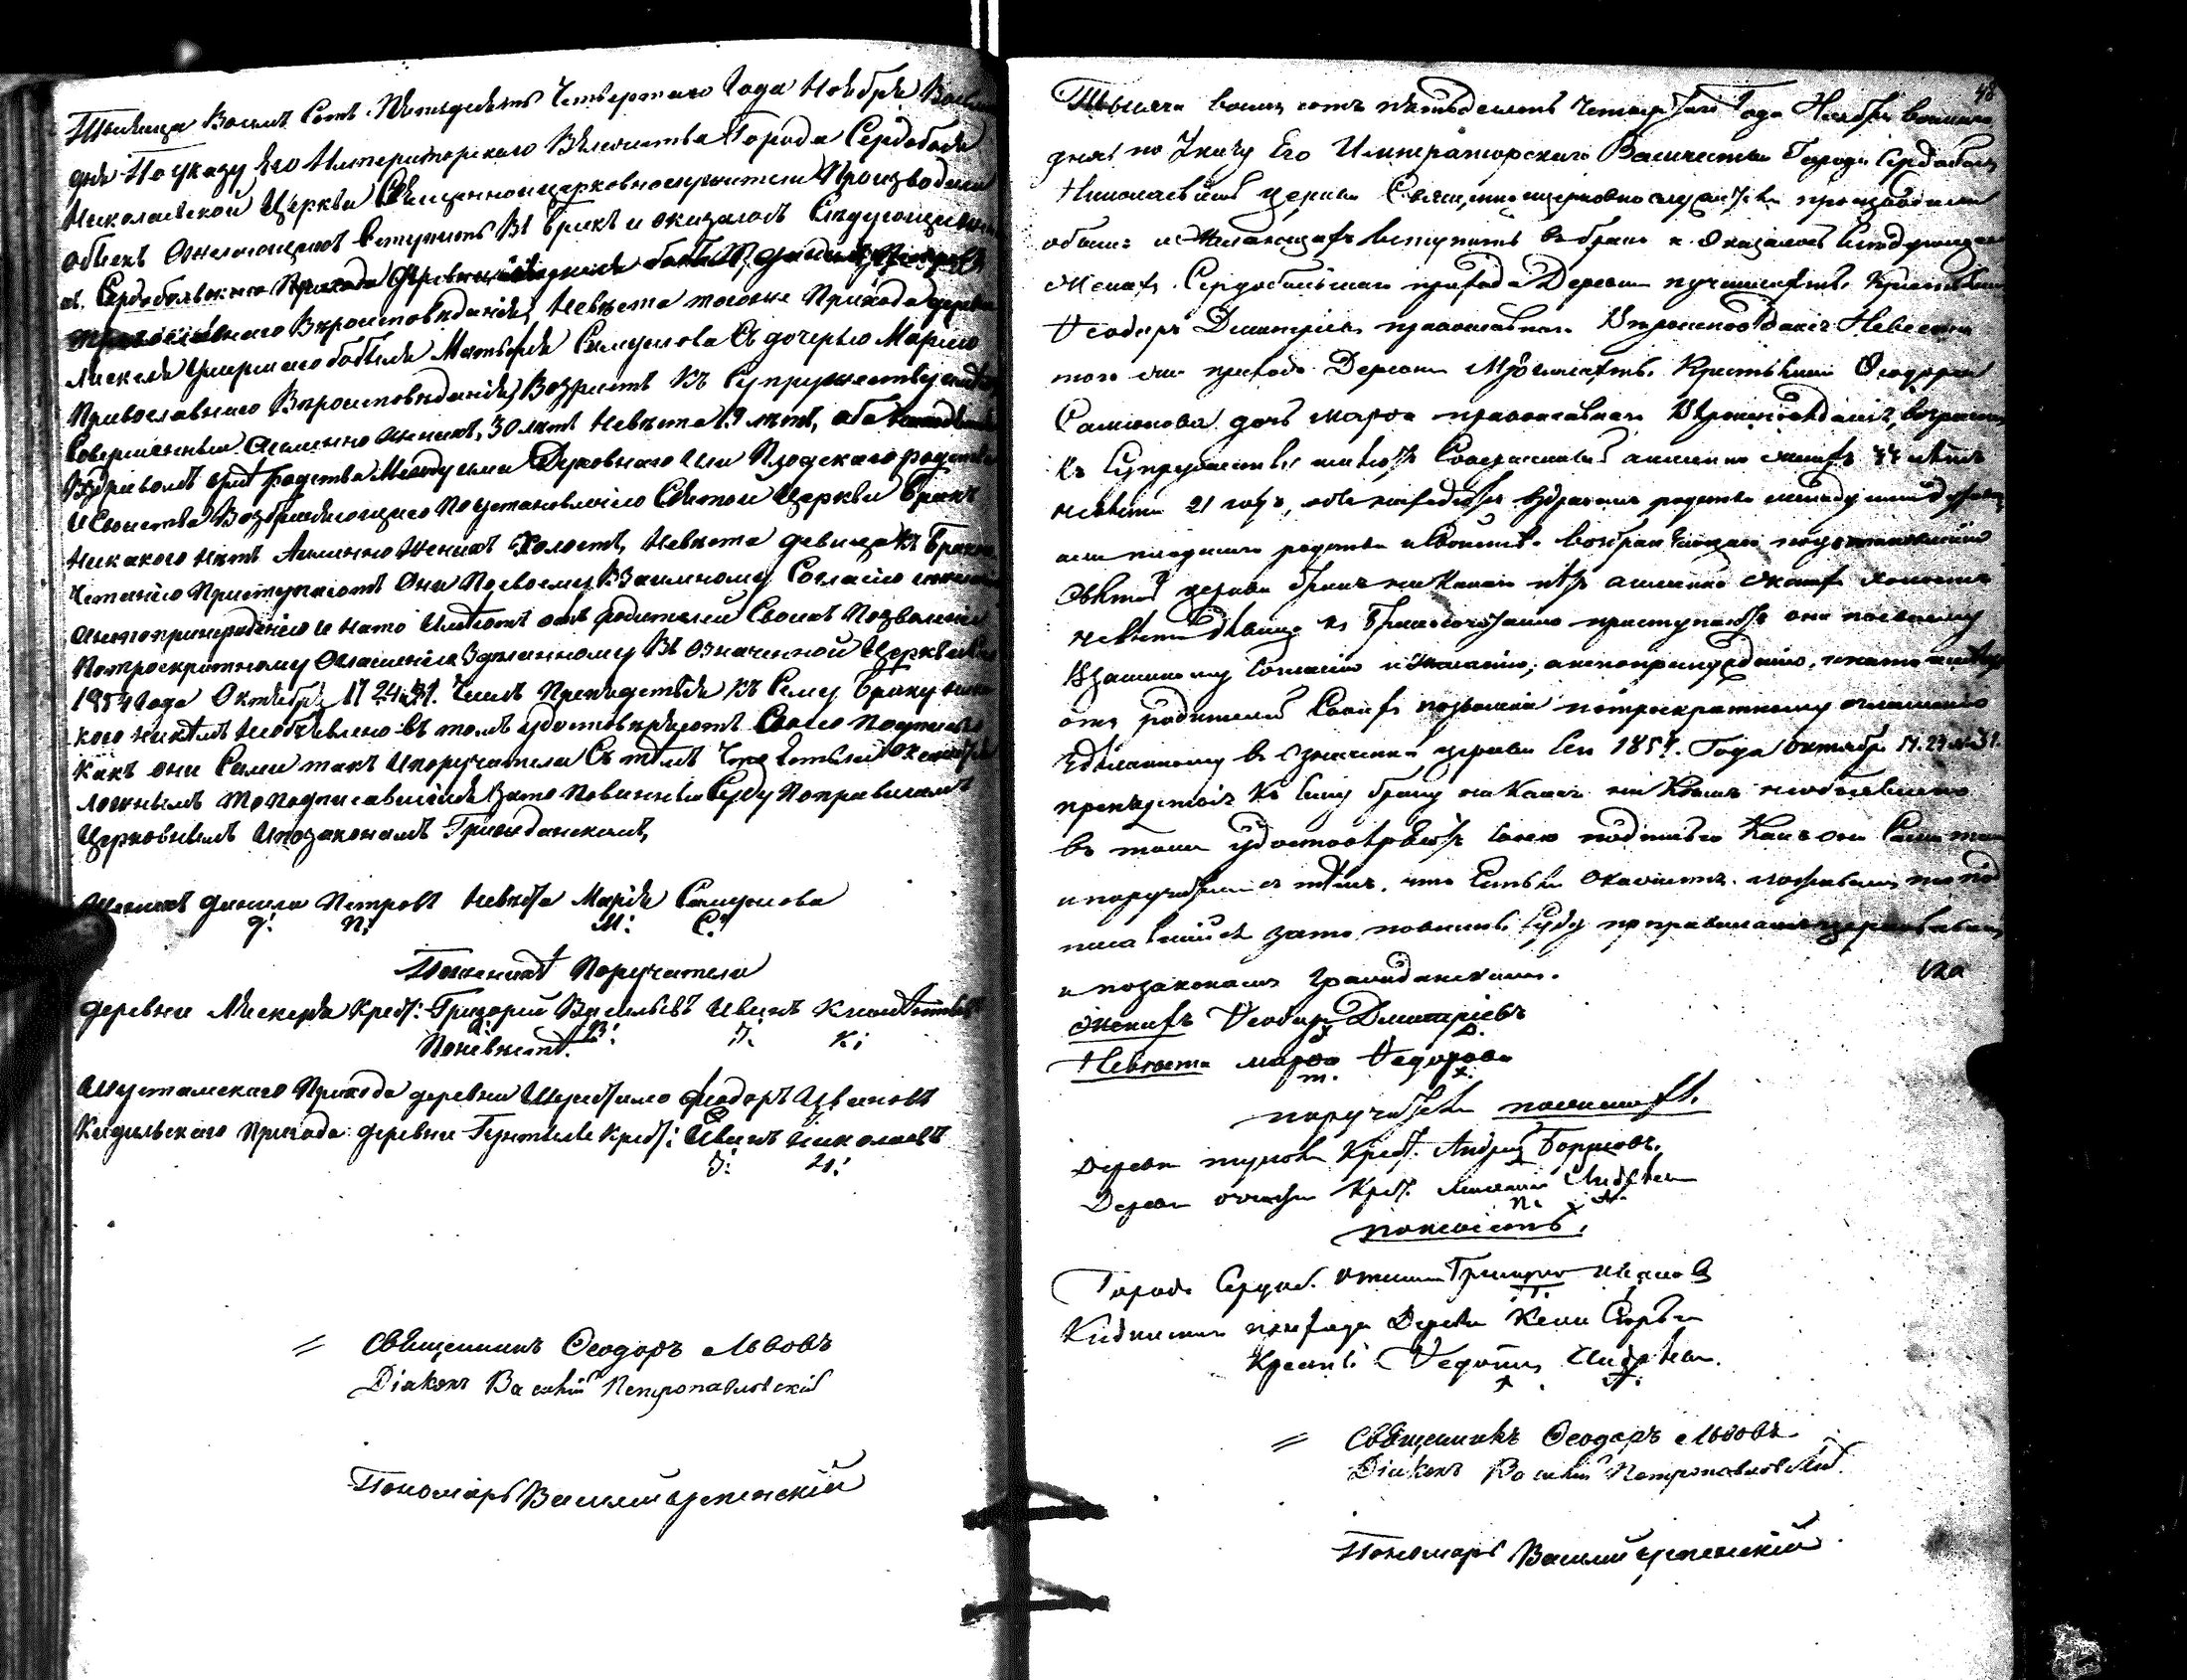 Тысяща Восемъ Сотъ Пятьдесятъ Четвертаго Года Ноября
дня По указу Его Императорскаго Величества Города Сердоболя
Николаевской Церкви Священноцерковнослужители Производили
обыскъ Ожелающихъ Вступить Въ бракъ и оказалось Следующее
Сердобольскаго Прихода деревни
Православнаго Вѣроисповѣданія, Невѣста тогоже Прихода деревни
умершаго бобыля Матвѣя Самуилова Съ дочерью Марією
Православнаго Вѣроисповѣданія, Возрастъ Къ Супружеству
Совершенный Аименно Женихъ, 30 лѣтъ Невѣста 19 лѣтъ, оба находятся
Вздравомъ умѣ родства Между ими Духовнаго Или Плодскаго родства
И Свойства Возбраняющаго По установленію Святой Церкви бракъ
Никакого нѣтъ Аименно Женихъ Холостъ, Невѣста девица, Къ Брако
Четанію Приступаютъ Они По своему Взаимному Согласію и
Анепопринужденію и нато Имѣютъ отъ родителей Своихъ Позволеніе
Потроекратному Оглашенію Здѣланному Въ Означенной Церкви
1854 Года Октября, 17 24 и 31. Числъ Препядствія Къ Сему браку ника
кого никѣмъ Необъявлено Въ томъ удостовѣряютъ Своею Подписью
Какъ они Сами такъ Ипоручатели Съ тѣмъ Что Естьли
ложнымъ то Подписавшіися Зато Повинны Суду По правиламъ
Церковнымъ Ипозаконамъ Гражданскимъ,
Женихъ Данила Петровъ Невѣста Марія Самуилова
Д: П: М: С:
Поженихѣ Поручатели
деревни Крест: Григорий Васильевъ Иванъ
Г: В: І: К:
Поневѣстѣ.
Прихода деревни Феодоръ Ивановъ
Прихода деревни Крест: Иванъ Николаевъ
І: Н:
Священникъ Ѳеодоръ Львовъ
Діаконъ Василій Петропавловскій
Пономарь Василий Успенскій
48
Тысяча восемь сотъ пятьдесятъ четвертаго Года Ноября
дня по Указу Его Императорскаго Величества Города Сердоболя
Николаевской церкви Священноцерковнослужители производили
обыскъ ожелающихъ вступить въ бракъ и оказалось следующее
Женихъ Сердобольскаго прихода Деревни Крестьянинъ
Ѳеодоръ Дмитріевъ православнаго Вѣроисповѣданія Невеста
того же прихода Деревни Крестьянина Ѳеодора
Самсонова дочь Марѳа православнаго Вѣроисповѣданія, возрастъ
къ Супружеству имѣютъ Совершенный аименно женихъ лѣтъ
невѣста 21 годъ, оба находятся вздравомъ родства между ими
или плодскаго родства и свойства возбраняющаго поустановленію
Святой церкви бракъ никакого нѣтъ аименно женихъ холостъ
невѣста дѣвица къ бракосочетанію приступаютъ они посвоему
Взаимному согласію и желанію, анепопринужденію, инато
отъ родителей своихъ позволеніе потроекратному оглашенію
здѣланному въ означенной церкви сего 1854. Года октября 17. 24 и 31.
препядствія къ сему браку никакого никѣмъ необъявлено
въ томъ удостовѣряютъ своею подписью какъ они сами такъ
ипоручатели съ тѣмъ, что естьли окажется ложнымъ то под
писавшіися зато повинны суду поправиламъ церковнымъ
и позаконамъ гражданскимъ.
Женихъ Ѳеодоръ Дмитріевъ
Невѣста Марѳа Ѳедорова
поручители поженихѣ.
Деревни Крест. Андрей Борисовъ.
Деревни Крест.
поневѣстѣ.
Города Сердоб. Григорій Ивановъ
прихода Деревни
Крестья: Ѳедоръ Андреевъ.
Священникъ Ѳеодоръ Львовъ
Діаконъ Василій Петропавловскій.
Пономарь Василий Успенскій